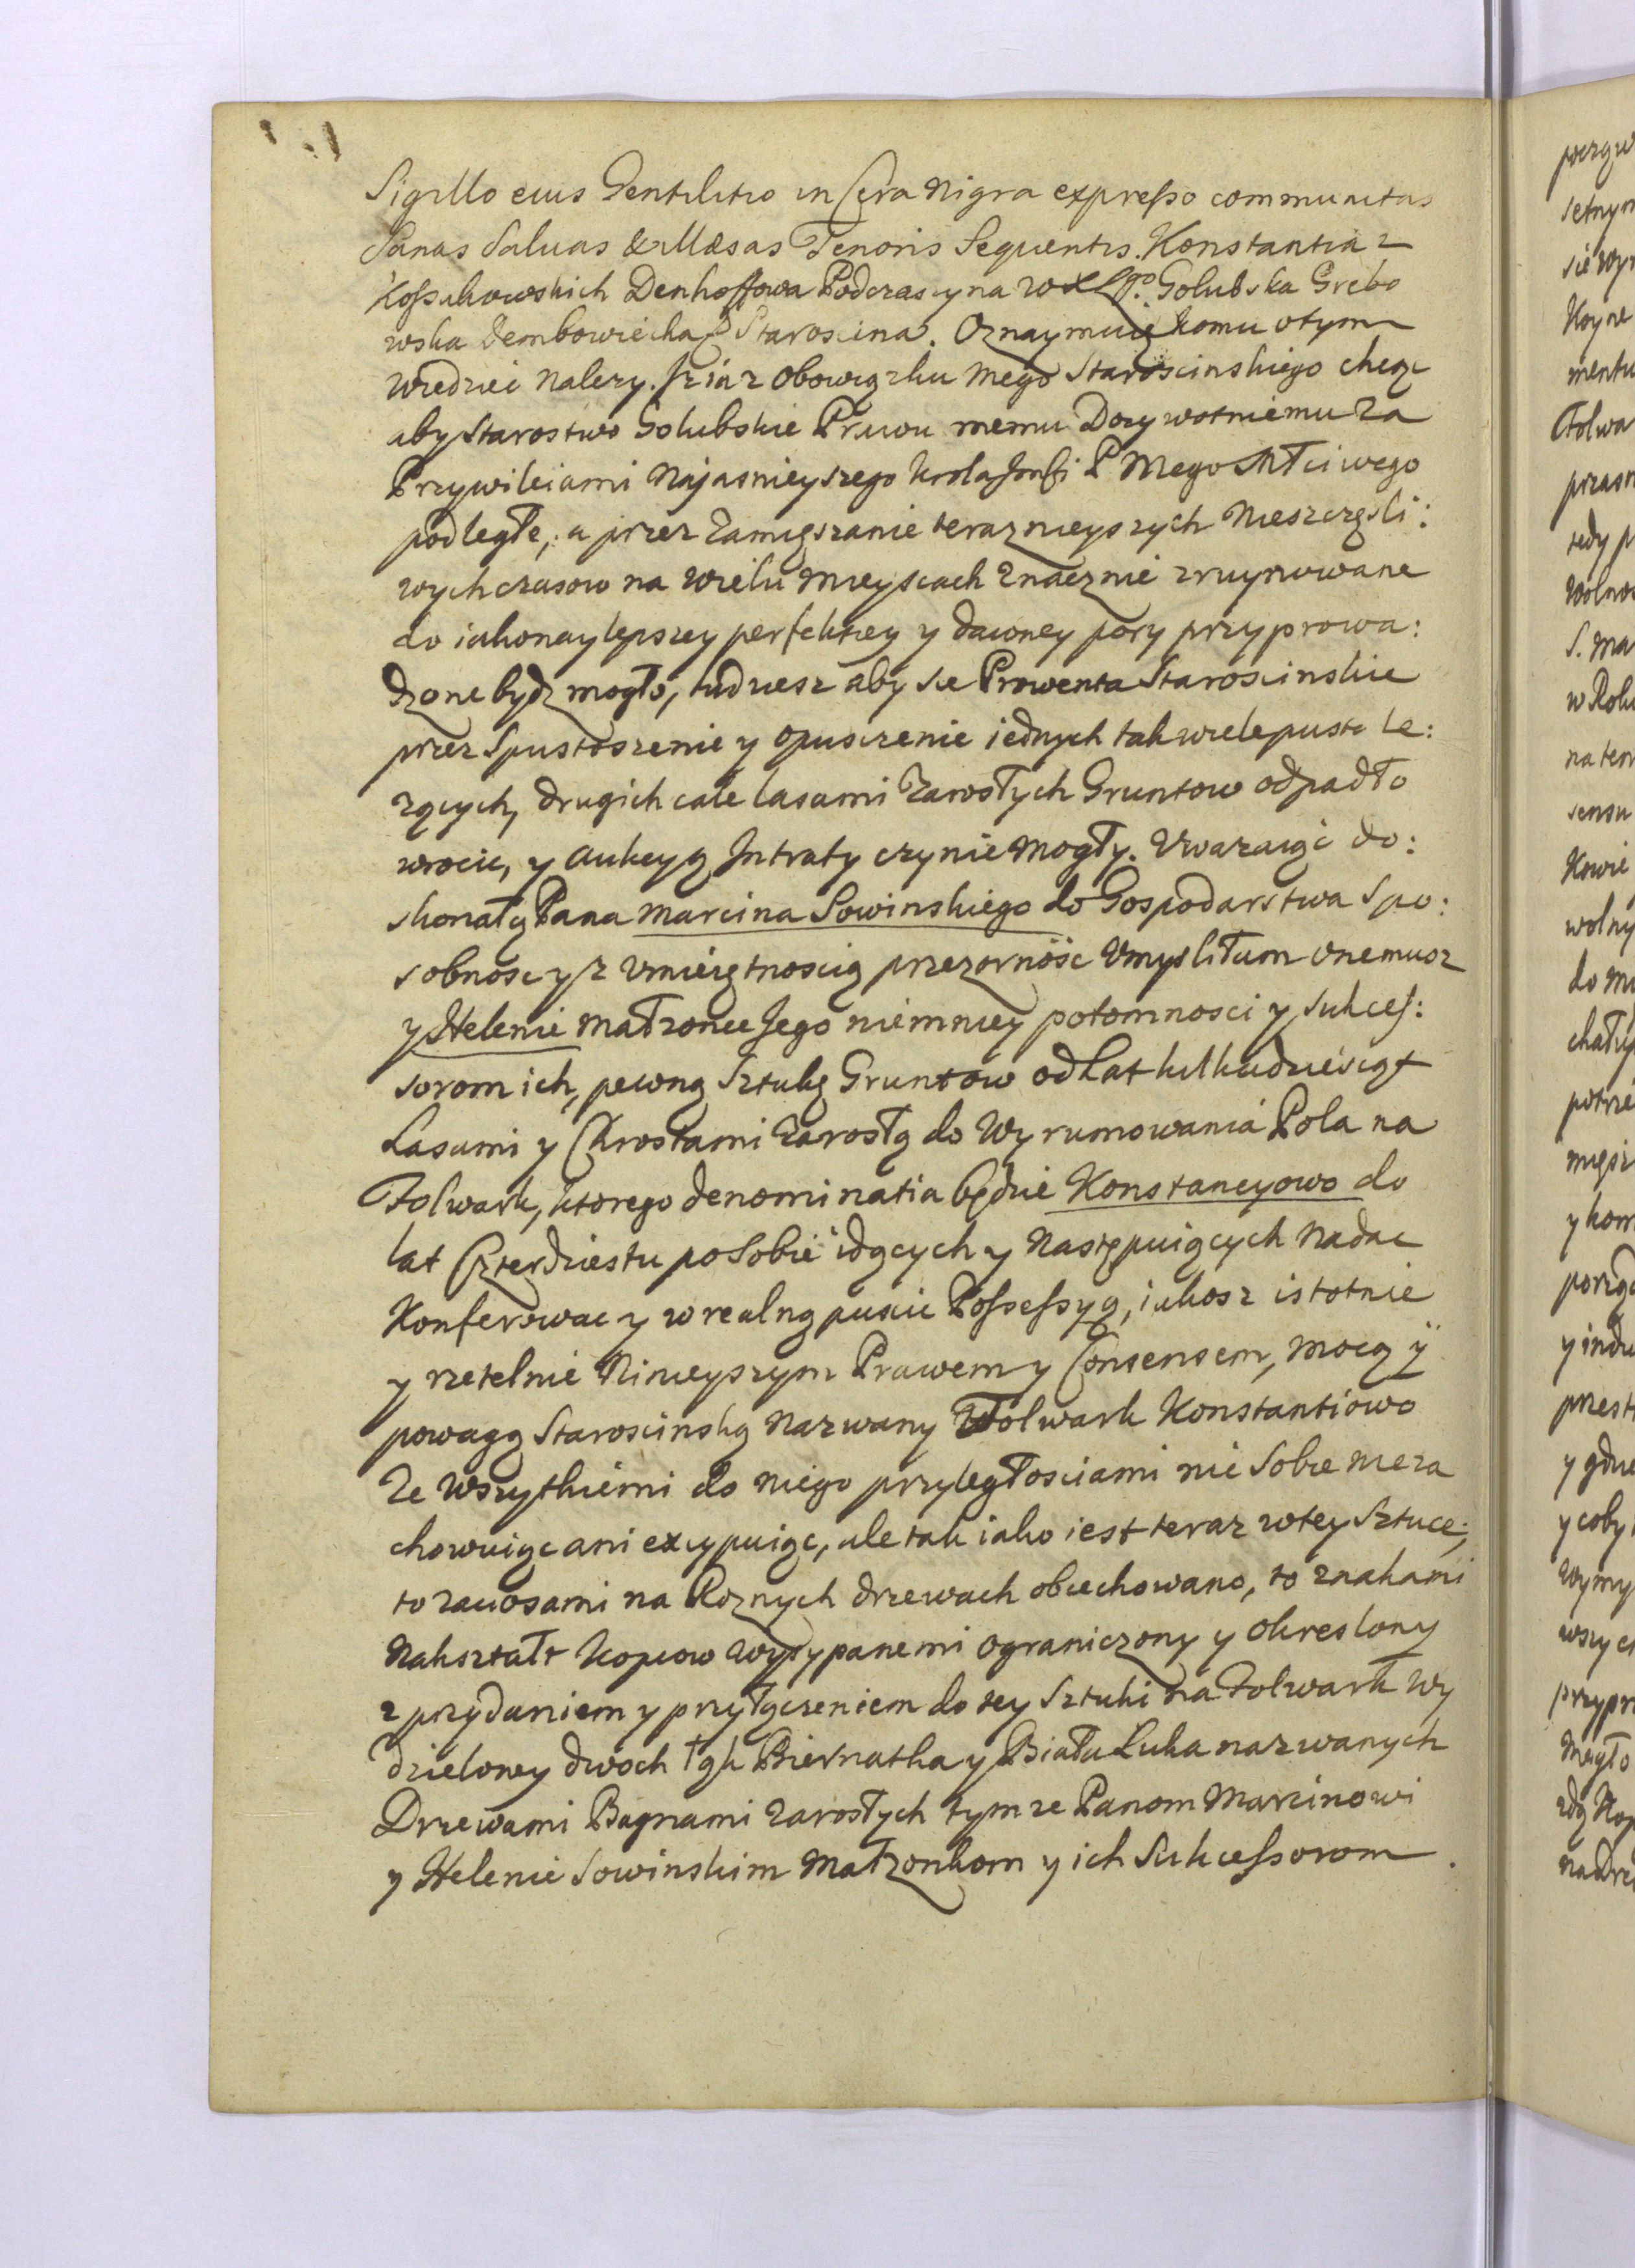 Sigillo eius Gentilitio in Cera Nigra expresso communitas
Sanas Saluas & Illæsas Tenoris Sequentis. Konstantia z
Kossakowskich Denhoffowa Podczaszyna WXLgo. Golubska Grebo
wska Dembowiecka & Staroscina. Oznaymuię komu o tym
wiedziec nalezy. Jz ia z Obowiązku mego Staroscinskiego chcąc
aby Starostwo Golubskie Prawu memu Dozywotniemu za
Przywileiami Najasnieyszego Krola Jmsci P Mego Młciwego
podległe, a przez zamięszanie teraznieyszych Nieszczęsli:
wych czasow na wielu mieyscach znacznie zruynowane
do iakonaylepszey perfekcyey y dawney pory przyprowa:
dzone bydz mogło, tudziesz aby sie Prowenta Staroscinskie
przez Spustoszenie y opusczenie iednych tak wiele pusto le:
zących, drugich cale lasami zarosłych Gruntow odpadło
wrocic, y aukcyą Jntraty czynic mogły. Uwazaiąc do:
skonałą Pana Marcina Sowinskiego do Gospodarstwa Spo:
sobnosc y z umieiętnoscią przezornosc umysliłam onemusz
y Helenie małzonce Jego niemniey potomnosci y Sukces:
sorom ich, pewną Sztukę Gruntow od Lat kilkudziesiąt
Lasami y Chrostami zarosłą do Wyrumowania Pola na
Folwark, ktorego denominatia będzie Konstancyowo do
lat Czterdziestu po sobie idących y Następuiących nadac
Konferowac y w realną puscic Possessyą, iakosz istotnie
y rzetelnie Ninieyszym Prawem y Consensem, mocą y
powagą Staroscinską nazwany Folwark Konstantiowo
Ze wszytkiemi do niego przyległosciami nic Sobie nieza
chowuiąc ani excypuiąc, ale tak iako iest teraz w tey Sztuce,
to zaciosami na Roznych drzewach obciechowano, to znakami
Nakształt kopcow wysypanemi ograniczony y okreslony
z przydaniem y przyłączeniem do tey Sztuki na Folwark wy
dzieloney dwoch łąk Biernatka y Biała Luka nazwanych
Drzewami Bagnami zarosłych tymze Panom Marcinowi
y Helenie Sowinskim Małzonkom y ich Sukcessorom